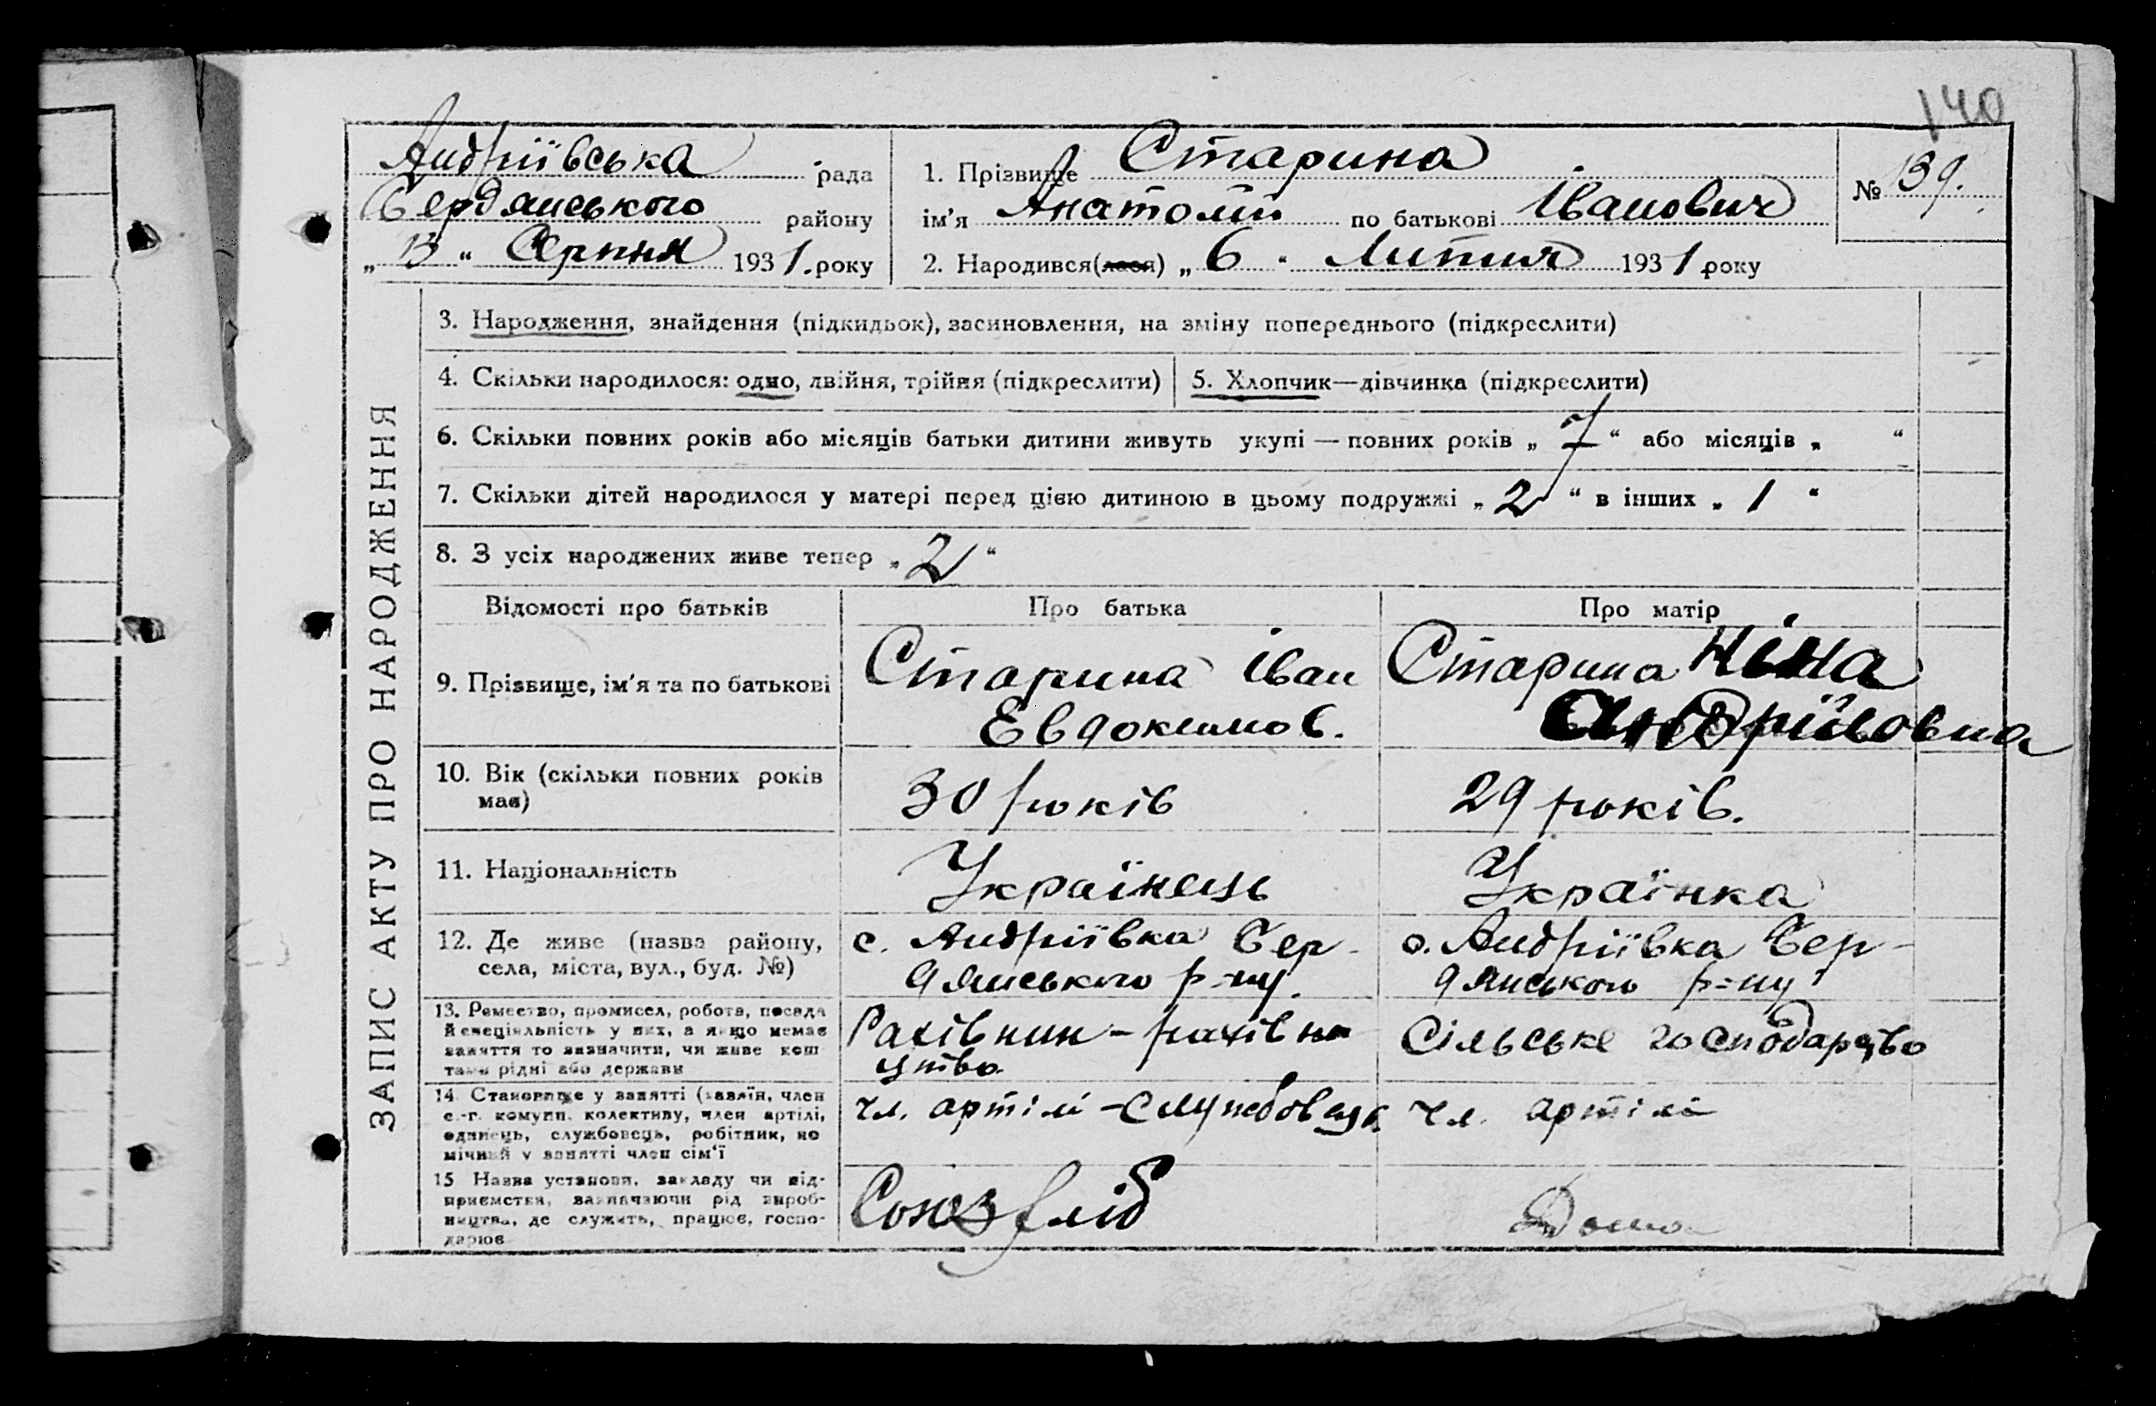 140
Андріївська рада
Бердянського району
„13“ Серпня 1931. року
1. Прізвище Старина
ім'я Анатолій по батькові Іванович
2. Народився(лася) „6“ Липня 1931 року
№ 139.
ЗАПИС АКТУ ПРО НАРОДЖЕННЯ
3. Народження, знайдення (підкидьок), засиновлення, на зміну попереднього (підкреслити)
4. Скільки народилося: одно, двійня, трійня (підкреслити)
5. Хлопчик—дівчинка (підкреслити)
6. Скільки повних років або місяців батьки дитини живуть укупі — повних років „7“ або місяців „ “
7. Скільки дітей народилося у матері перед цією дитиною в цьому подружжі „2“ в інших „1“
8. З усіх народжених живе тепер „2“
Відомості про батьків
Про батька
Про матір
9. Прізвище, ім'я та по батькові
Старина Іван
Евдокимов.
Старина Ніна
Андріївовна
10. Вік (скільки повних років
має)
30 років
29 років.
11. Національність
Українець
Українка
12. Де живе (назва району,
села, міста, вул., буд. №)
с. Андріївка Бер-
дянського р-ну.
с. Андріївка Бер-
дянського р=ну
13. Ремество, промисел, робота, посада
й спеціяльність у них, а якщо немає
заняття то зазначити, чи живе кош
тами рідні або держави
Рахівник – рахівни
цтво
Сільське господарство
14. Становище у занятті (хазяїн, член
с.-г. комуни, колективу, член артілі,
одинець, службовець, робітник, по
мічний у занятті член сім'ї
чл. артілі – службовець
чл. артілі
15 Назва установи, закладу чи під-
приємства, зазначаючи рід вироб-
ництва, де служить, працює, госпо-
дарює
Союзхліб
Дома